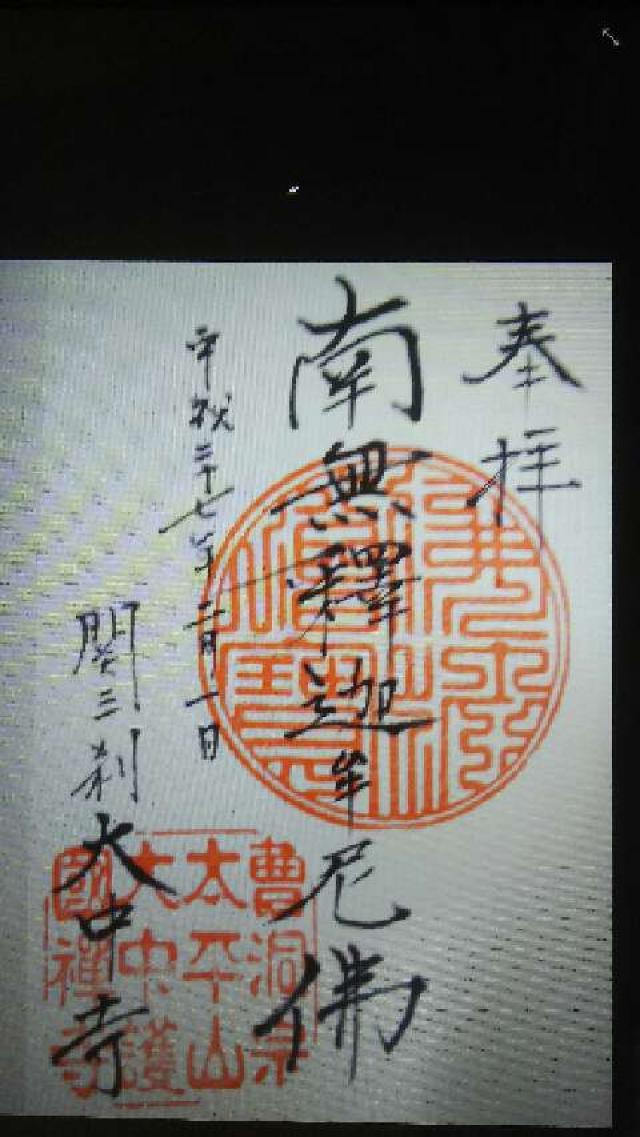 奉拝
南無釋迦牟尼佛
平成二十七年二月一日
関三刹
大中寺
曹洞宗
太平山
大中護
國禅寺